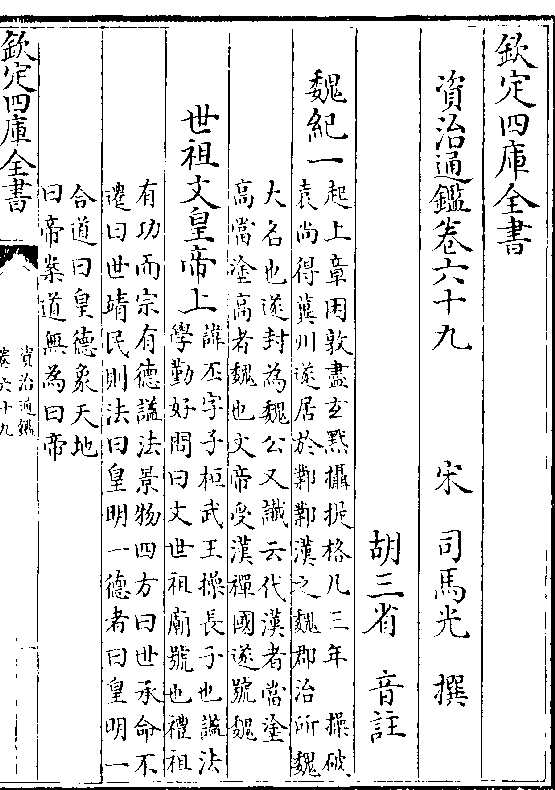 欽定四庫全書
資治通鑑卷六十九
宋 司馬光 撰
胡三省 音註
魏紀一
起上章困敦盡玄黓攝提格凡三年 操破
袁尚得冀州遂居於鄴鄴漢之魏郡治所魏
大名也遂封為魏公又讖云代漢者當塗
高當塗高者魏也文帝受漢禪國遂號魏
世祖文皇帝上
諱丕字子桓武王操長子也諡法
學勤好問曰文世祖廟號也禮祖
有功而宗有德諡法景物四方曰世承命不
遷曰世靖民則法曰皇明一德者曰皇明一
合道曰皇德象天地
曰帝案道無為曰帝
欽定四庫全書
資治通鑑
卷六十九
一